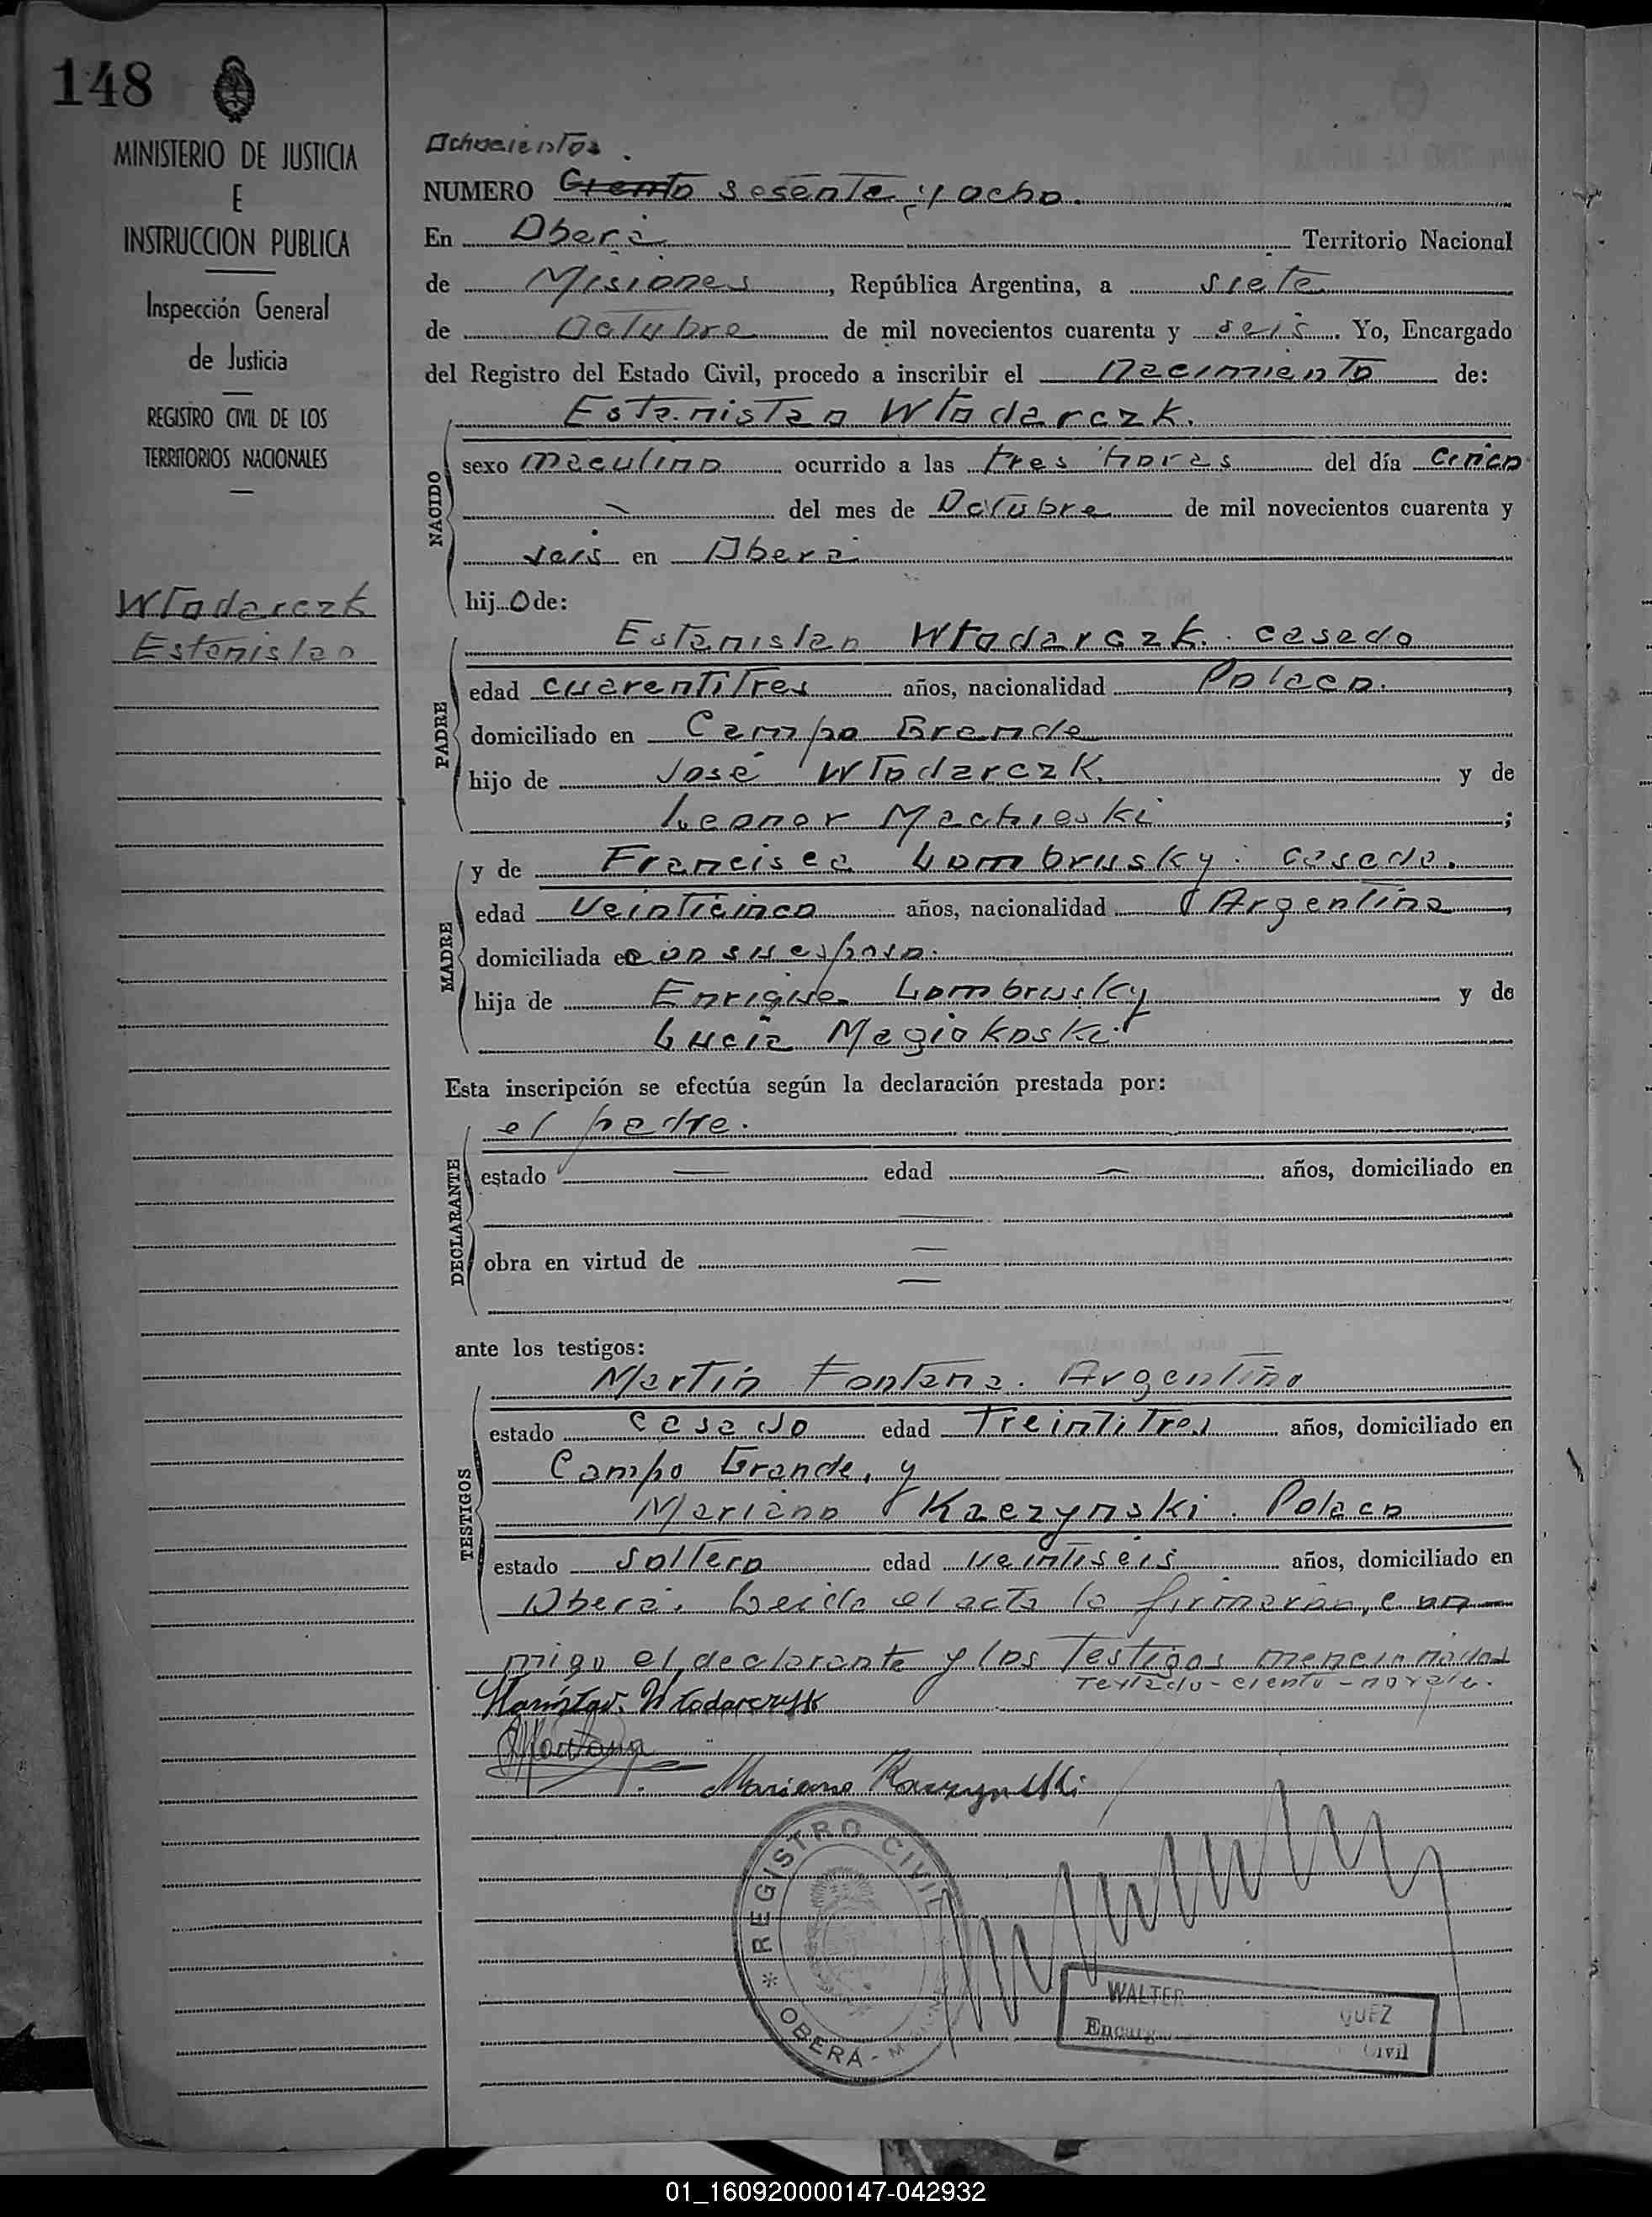 148
MINISTERIO DE JUSTICIA
E
INSTRUCCION PUBLICA
Inspección General
de Justicia
REGISTRO CIVIL DE LOS
TERRITORIOS NACIONALES
Włodarczk
Estanislao
Ochocientos
NUMERO Ciento sesenta y ocho.
En Oberá Territorio Nacional
de Misiones, República Argentina, a siete
de Octubre de mil novecientos cuarenta y seis. Yo, Encargado
del Registro del Estado Civil, procedo a inscribir el Nacimiento de:
Estanislao Włodarczk.
NACIDO
sexo masculino ocurrido a las tres horas del día cinco
del mes de Octubre de mil novecientos cuarenta y
seis en Oberá
hijo de:
Estanislao Włodarczk. casado
PADRE
edad cuarentitres años, nacionalidad Polaco.,
domiciliado en Campo Grande
hijo de José Włodarczk. y de
Leonor Machieski;
MADRE
y de Francisca Lombrusky. casada.
edad veinticinco años, nacionalidad Argentina,
domiciliada con su esposo.
hija de Enrique Lombrusky y de
Lucía Magiokoski.
Esta inscripción se efectúa según la declaración prestada por:
el padre.
DECLARANTE
estado — edad — años, domiciliado en
obra en virtud de
ante los testigos:
Martín Fontana. Argentino
TESTIGOS
estado casado edad treintitres años, domiciliado en
Campo Grande, y
Mariano Kaczynski. Polaco
estado soltero edad veintiseis años, domiciliado en
Oberá. Leída el acta la firmaron, con
migo el declarante y los testigos mencionados
Textado-ciento-no vale.
Stanisław Włodarczyk
MFontana
Mariano Kaczynski
REGISTRO CIVIL
OBERÁ - M
WALTER QUEZ
Encarg Civil
01_160920000147-042932